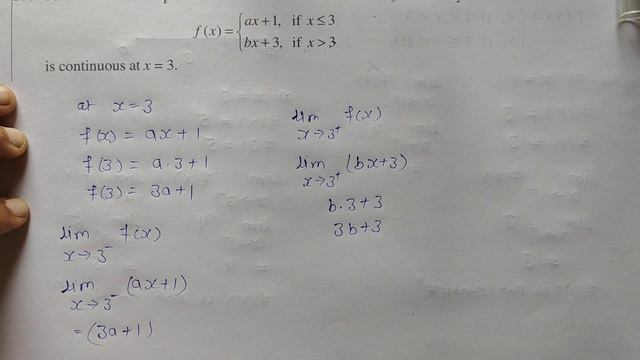 f(x) = { ax+1, if x ≤ 3
bx+3, if x > 3
is continuous at x = 3.
at x = 3
f(x) = ax + 1
f(3) = a.3 + 1
f(3) = 3a+1
lim f(x)
x→3⁻
lim (ax+1)
x→3⁻
= (3a+1)
lim f(x)
x→3⁺
lim (bx+3)
x→3⁺
b.3+3
3b+3